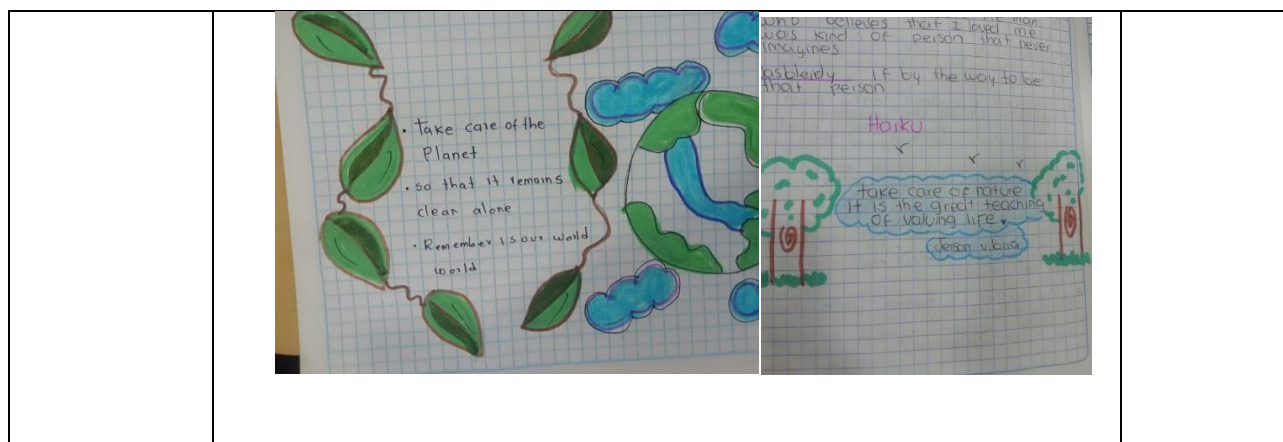 • Take care of the
Planet
• so that it remains
clean alone
• Remember is our world
world
who believes that I loved me
was kind of person that never
imagines
if by the way to be
that person
Haiku
take care of nature
It is the great teaching
of valuing life.